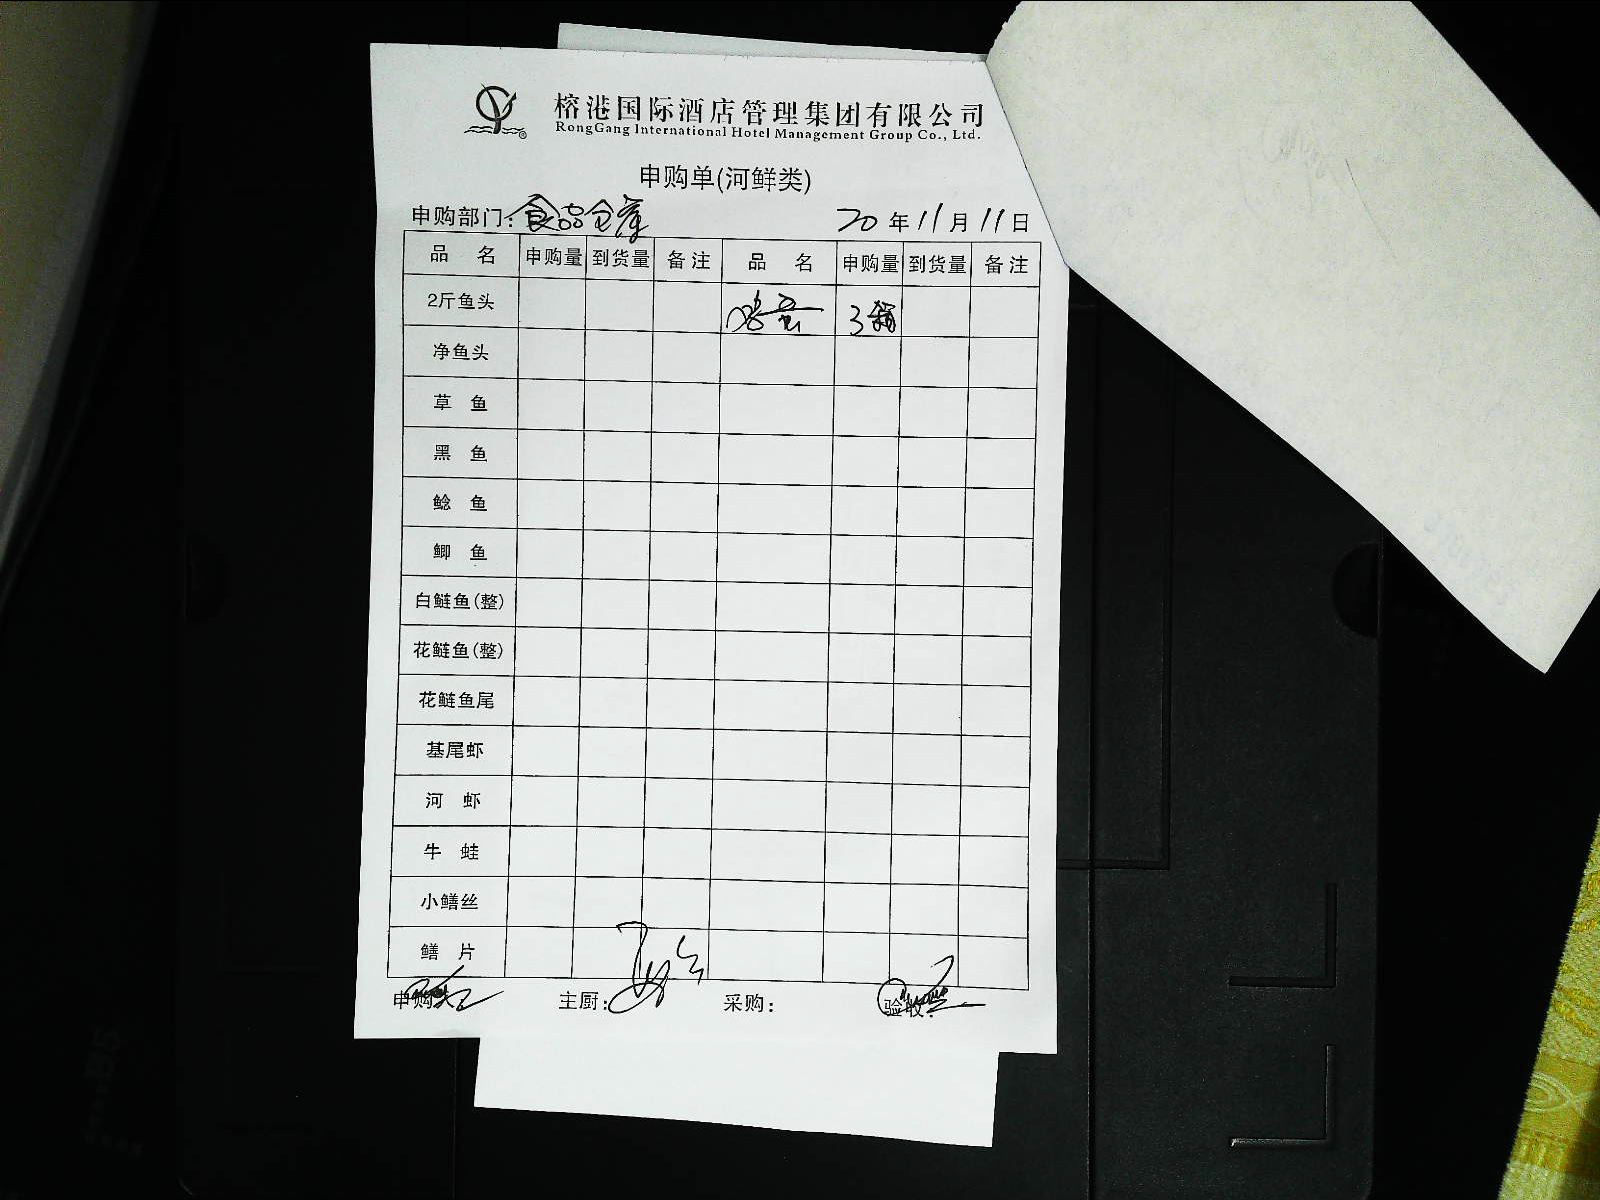 榕港国际酒店管理集团有限公司
RongGang International Hotel Management Group Co., Ltd.
申购单(河鲜类)
申购部门：食品仓库 20年11月11日
品 名 申购量 到货量 备注 品 名 申购量 到货量 备注
2斤鱼头 3箱
净鱼头
草 鱼
黑 鱼
鲶 鱼
鲫 鱼
白鲢鱼(整)
花鲢鱼(整)
花鲢鱼尾
基尾虾
河 虾
牛 蛙
小鳝丝
鳝 片
申购 主厨： 采购： 验收：